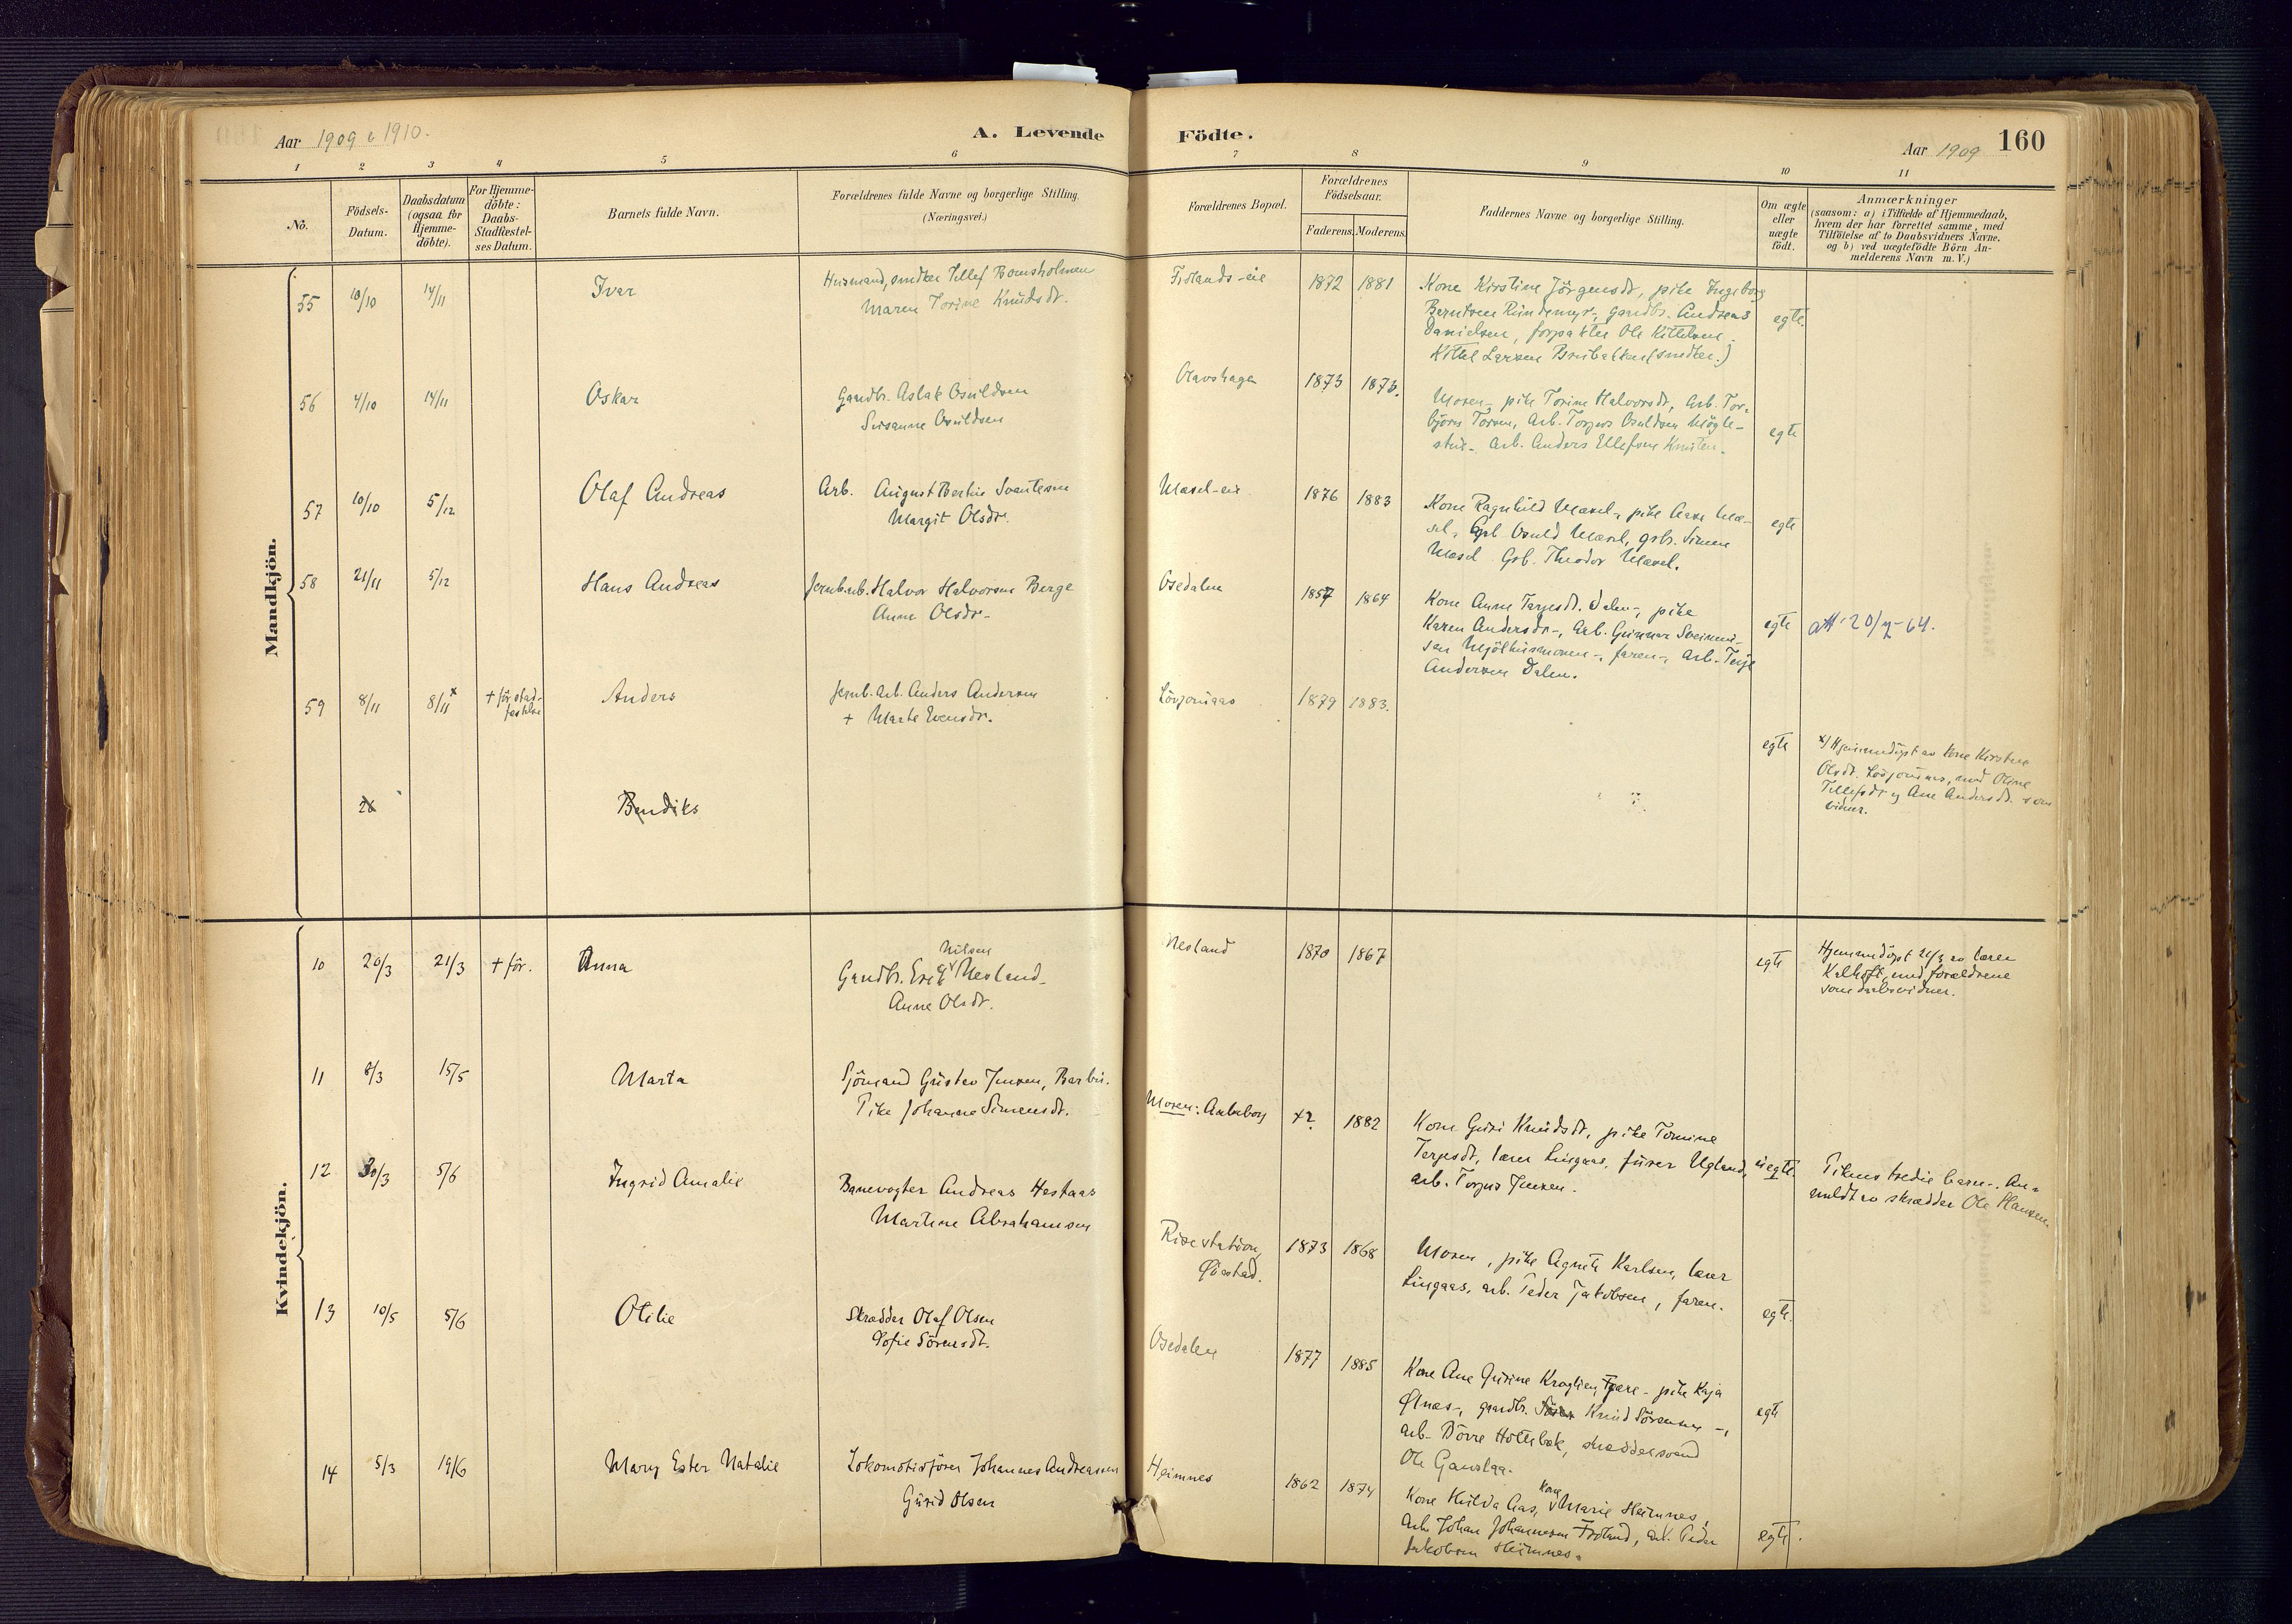 Aar 1909 & 1910.
A. Levende
Födte.
Aar 1909
160
1 2 3 4 5 6 7 8 9 10 11
No.
Födsels-
Datum.
Daabsdatum
(ogsaa for
Hjemme-
döbte).
For Hjemme-
döbte:
Daabs-
Stadfæstel-
ses Datum.
Barnets fulde Navn.
Forældrenes fulde Navne og borgerlige Stilling.
(Næringsvei.)
Forældrenes Bopæl.
Forældrenes
Födselsaar.
Faderens. Moderens.
Faddernes Navne og borgerlige Stilling.
Om ægte
eller
uægte
födt.
Anmærkninger
(saasom: a) i Tilfælde af Hjemmedaab,
hvem der har forrettet samme, med
Tilföielse af to Daabsvidners Navne.
og b) ved uægtefödte Börn An-
melderens Navn m. V.)
Mandkjön.
55 10/10 14/11 Ivar
Husmand, snedker Tellef Bomsholmen
Maren Torine Knudsdr.
Frolands-eie 1872 1881
Kone Kirstine Jörgensdr, pike Ingeborg
Berntsen Rundemyr, gaardbr. Andreas
Danielsen, forpakter Ole Kittelsen
Kittel Larsen Brubakken (snedker.)
egte.
56 4/10 14/11 Oskar
Gaardbr. Aslak Osuldsen
Susanne Osuldsen
Olavshagen 1873 1873.
Moren, pike Torine Halvorsdr, Arb. Tor-
björn Torsen, Arb. Torjus Osuldsen Mögle-
stue. Arb. Anders Ellefsen Knuten.
egte
57 10/10 5/12 Olaf Andreas
Arb. August Bertin Svantesen
Margit Olsdr.
Mæsel-eie 1876 1883
Kone Ragnhild Mæsel, pike Aase Mæ-
sel, Gsb. Osuld Mæsel, gsb. Simen
Mæsel Gsb. Theodor Mæsel.
egte
58 21/11 5/12 Hans Andreas
Jernb.arb. Halvor Halvorsen Berge
Anne Olsdr.
Osedalen 1857 1864
Kone Anne Terjesdr. Dalen, pike
Karen Andersdr, Arb. Gunnar Sveinnu-
sen Mjölhusmoen, faren, Arb. Terje
Andersen Dalen.
egte
att. 20/7-64.
59 8/11 8/11 x + för stad-
festelse
Anders
Jernb. arb. Anders Andersen
+ Marte Evensdr.
Lövjomaas 1879 1883.
egte
x/ Hjemmedöpt av kone Kirstine
Olsdr. Lövjomaas, med Oline
Tellefsdr og Ane Andersdr. som
vidner.
26 Bendiks
Kvindekjön.
10 20/3 21/3 + för. Anna
Nilsen
Gaardbr. Erik Nesland
Anne Olsdr.
Nesland 1870 1867
egte
Hjemmedöpt 21/3 av lærer
Kalhoft, med forældrene
som daabsvidner.
11 8/3 15/5 Marta
Sjömand Gustav Jensen, Barbu.
Pike Johanne Simensdr.
Moren: Aaleborg x? 1882
Kone Guri Knudsdr, pike Tomine
Terjesdr, lærer Lingaas, furer Ugland,
arb. Torjus Jensen.
uegte.
Pikens tredie barn. An-
meldt av skrædder Ole Hansen.
12 30/3 5/6 Ingrid Amalie
Banevogter Andreas Hestaas
Martine Abrahamsen
Risestation,
Öiestad. 1873 1868
Moren, pike Agnete Karlsen, lærer
Lingaas, arb. Peder Jakobsen, faren.
egte.
13 10/5 5/6 Otilie
Skrædder Olaf Olsen
Sofie Sörensdr.
Osedalen 1877 1885
Kone Ane Gurine - pike Kaja
Ölnes, gaardbr. Knud Sörensen -,
arb. Börre Holtebæk, skræddersvend
Ole Gauslaa.
egte
14 5/3 19/6 Mary Ester Natalie
Lokomotivförer Johannes Andreassen
Gurid Olsen
Heimnes 1862 1874
Kone Hulda Aas, kone Marie Heimnes,
Arb. Johan Johannesen Froland, arb. Peder
Jakobsen Heimnes.
egte.